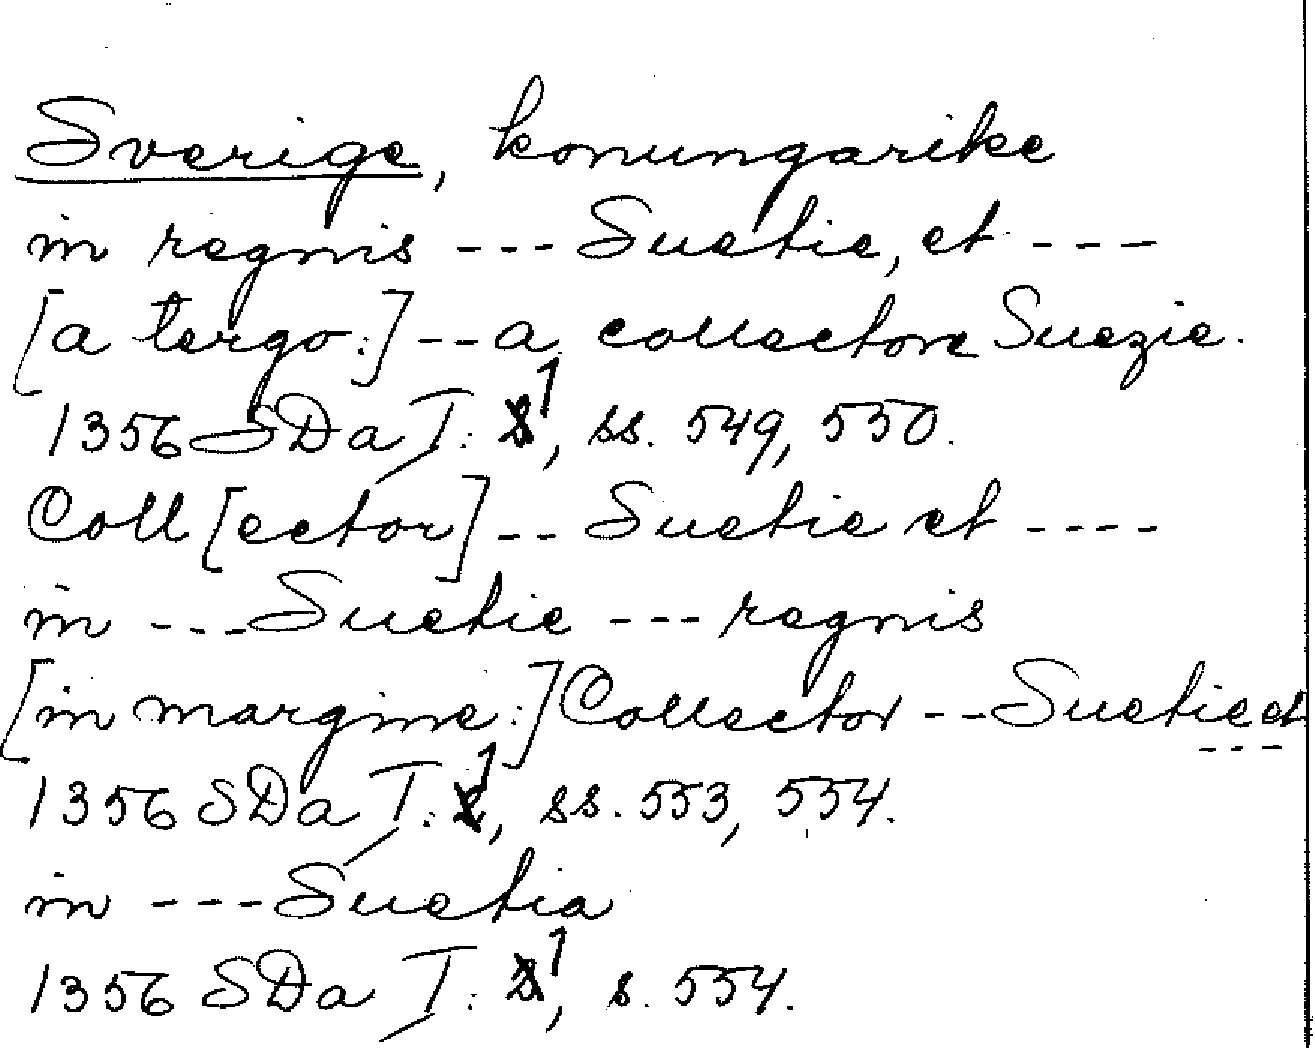 Sverige, konungarike
in regnis --- Suetie, et ---
[a tergo:] -- a collectore Suezie.
1356 SDa I: 1, ss. 549, 550.
Coll[ector] -- Suetie et ----
in --- Suetie --- regnis
[in margine:] Collector -- Suetie et
---
1356 SDa I: 1, ss. 553, 554.
in --- Suetia
1356 SDa I: 1, s. 554.